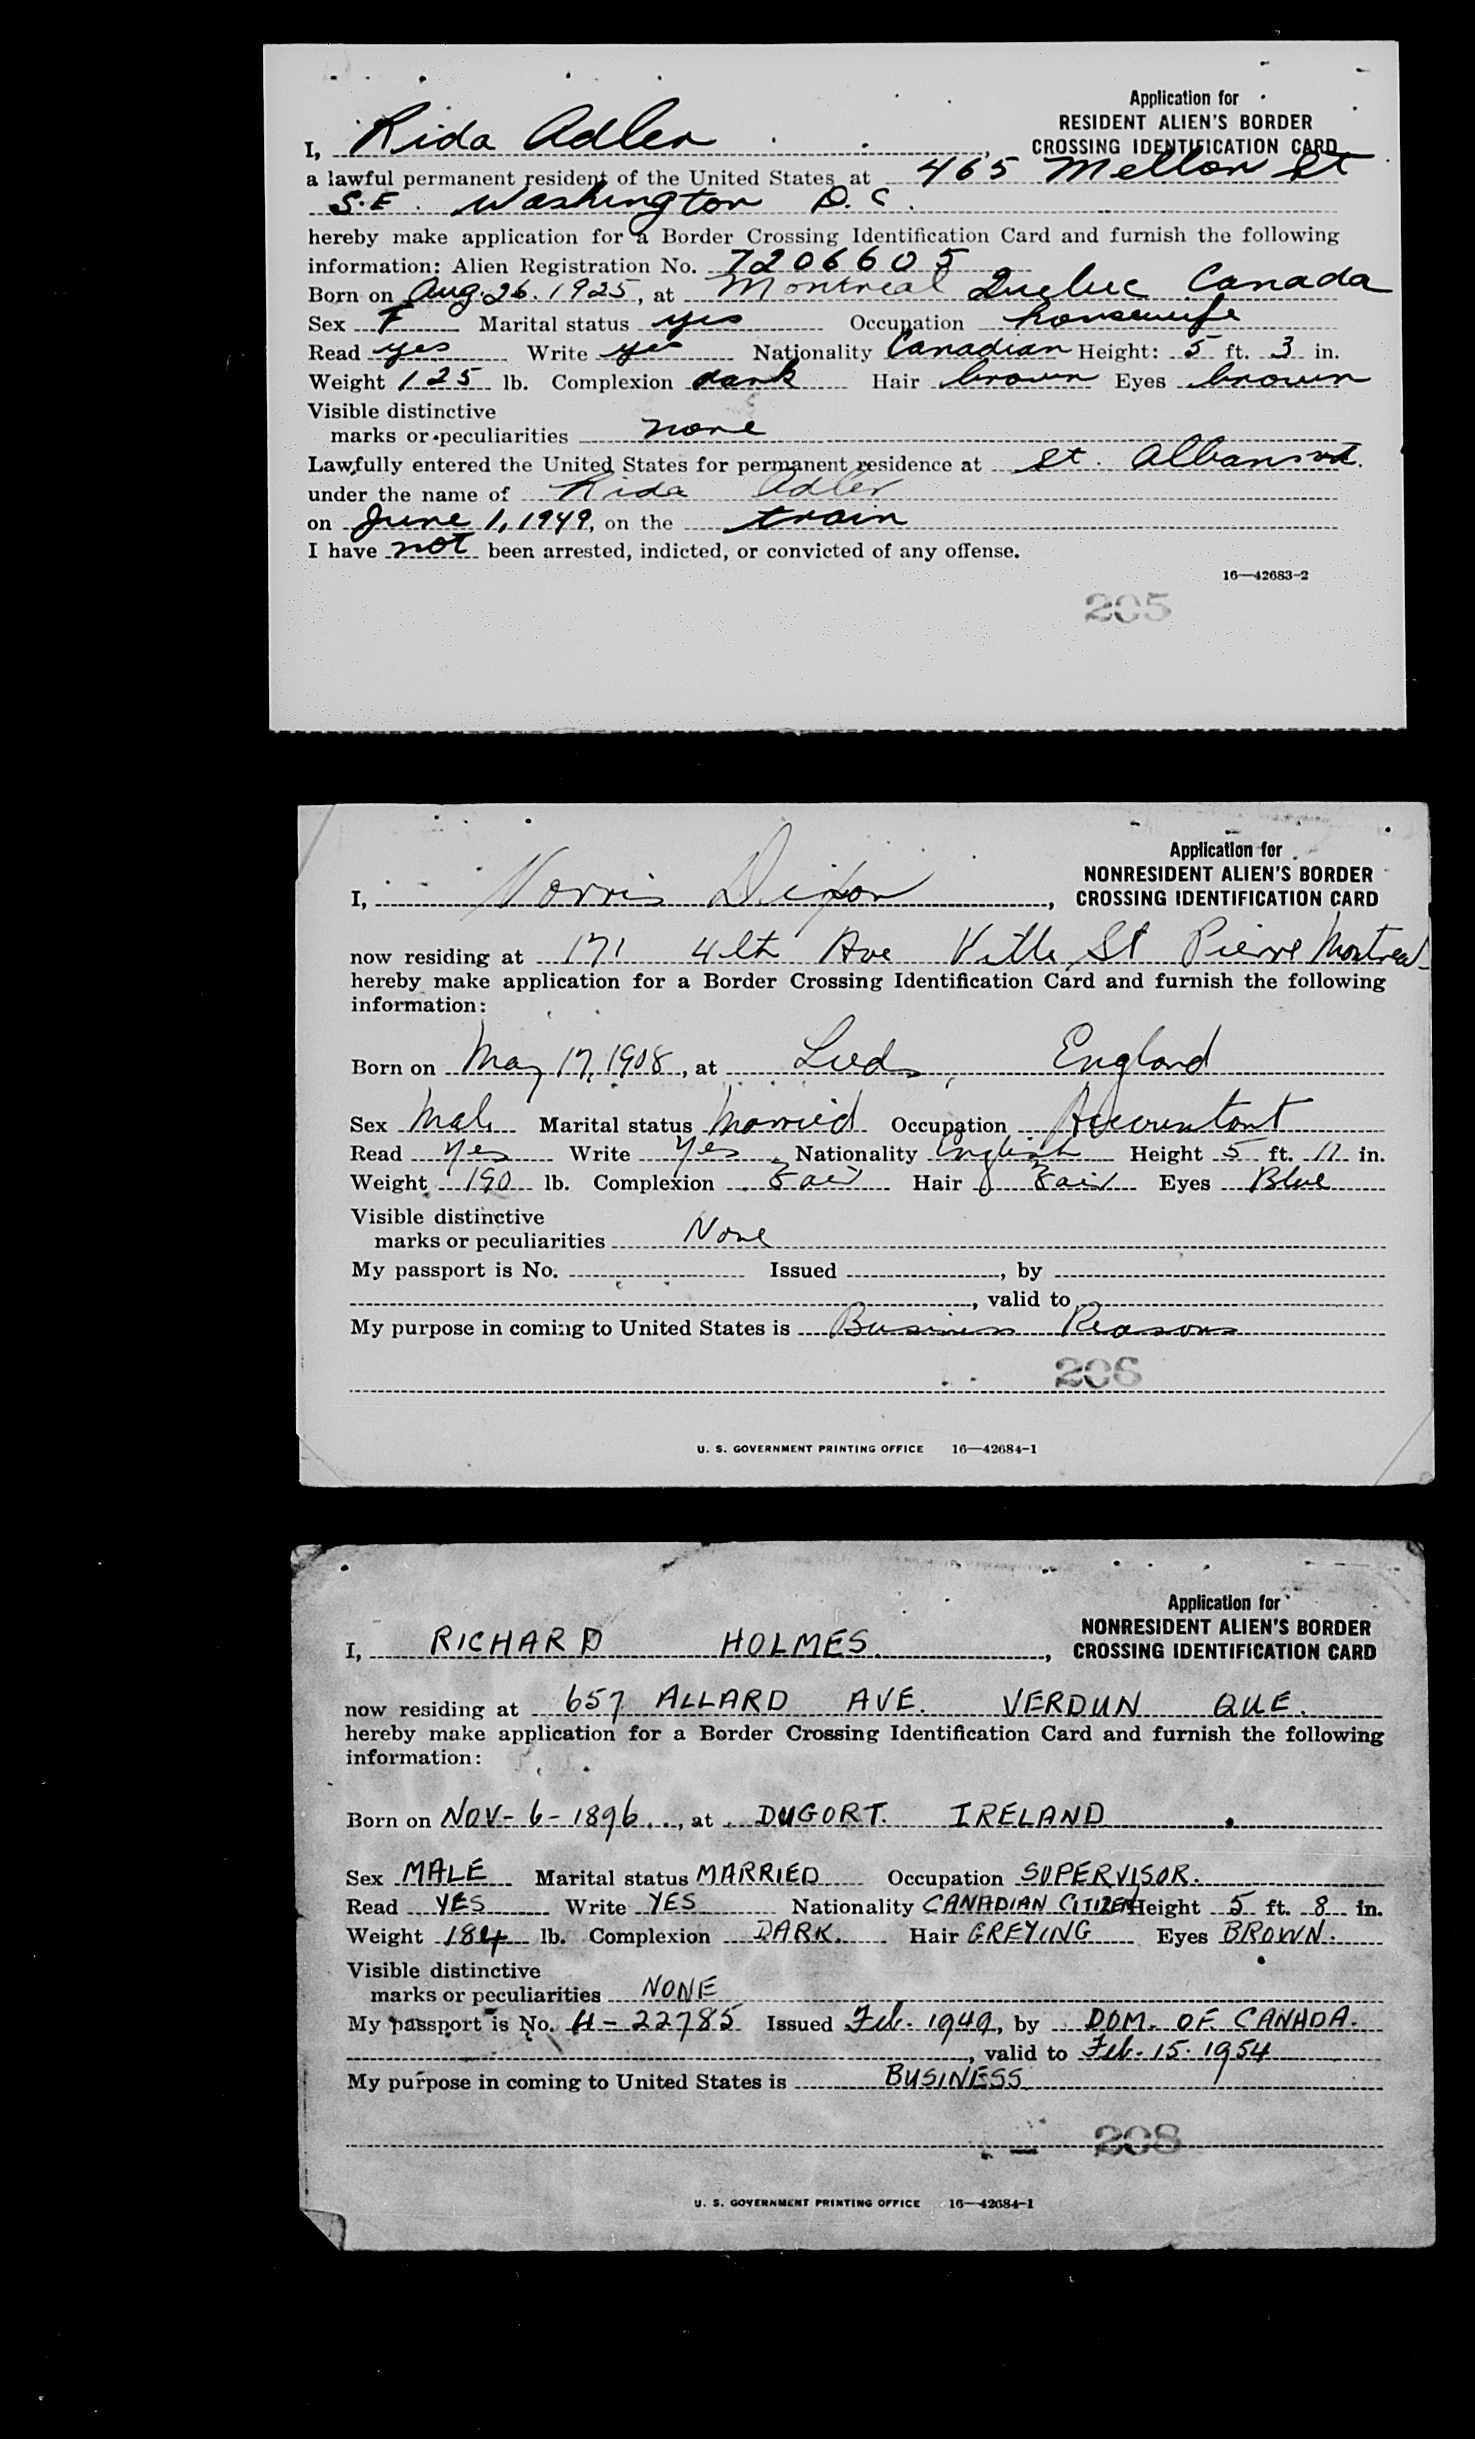 Application for
RESIDENT ALIEN'S BORDER
CROSSING IDENTIFICATION CARD
I, Rida Adler,
a lawful permanent resident of the United States at 465 Mellon St
S.E. Washington D.C.
hereby make application for a Border Crossing Identification Card and furnish the following
information: Alien Registration No. 7206605
Born on Aug. 26. 1925, at Montreal Quebec Canada
Sex F Marital status yes Occupation housewife
Read yes Write yes Nationality Canadian Height: 5 ft. 3 in.
Weight 125 lb. Complexion dark Hair brown Eyes brown
Visible distinctive
marks or peculiarities none
Lawfully entered the United States for permanent residence at St. Albans vt.
under the name of Rida Adler
on June 1, 1949, on the train
I have not been arrested, indicted, or convicted of any offense.
16—42683-2
205
Application for
NONRESIDENT ALIEN'S BORDER
CROSSING IDENTIFICATION CARD
I, Norris Dixon,
now residing at 171 4th Ave Ville St Pierre Montreal
hereby make application for a Border Crossing Identification Card and furnish the following
information:
Born on May 17, 1908, at Leeds, England
Sex Male Marital status Married Occupation Accountant
Read Yes Write Yes Nationality English Height 5 ft. 11 in.
Weight 190 lb. Complexion Fair Hair Fair Eyes Blue
Visible distinctive
marks or peculiarities None
My passport is No. Issued , by
, valid to
My purpose in coming to United States is Business Reasons
206
U. S. GOVERNMENT PRINTING OFFICE 16—42684-1
Application for
NONRESIDENT ALIEN'S BORDER
CROSSING IDENTIFICATION CARD
I, RICHARD HOLMES.,
now residing at 657 ALLARD AVE. VERDUN QUE.
hereby make application for a Border Crossing Identification Card and furnish the following
information:
Born on NOV-6-1896, at DUGORT. IRELAND
Sex MALE Marital status MARRIED Occupation SUPERVISOR.
Read YES Write YES Nationality CANADIAN CITIZEN Height 5 ft. 8 in.
Weight 184 lb. Complexion DARK. Hair GREYING Eyes BROWN.
Visible distinctive
marks or peculiarities NONE
My passport is No. 4-22785 Issued Feb. 1949, by DOM. OF CANADA.
, valid to Feb. 15. 1954
My purpose in coming to United States is BUSINESS
208
U. S. GOVERNMENT PRINTING OFFICE 16—42684-1